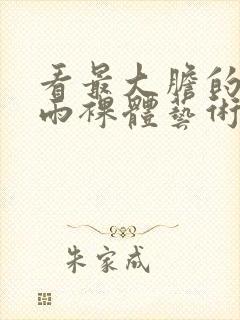 看最大膽的
雨裸體藝術
朱家成